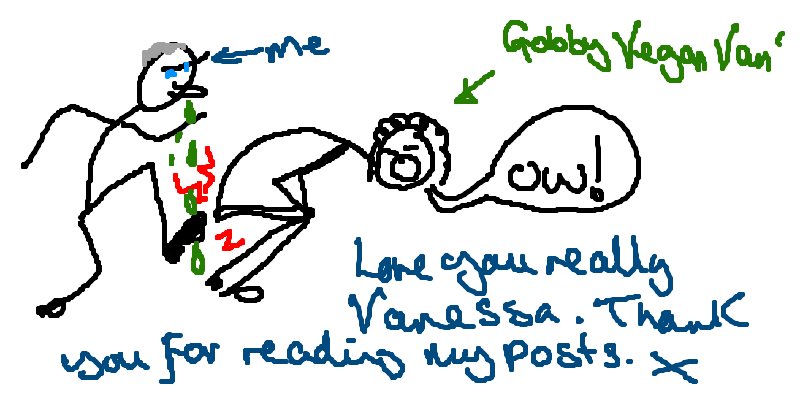 me
Gobby Vegan Van'
OW!
Love you really
Vanessa. Thank
you for reading my posts. x